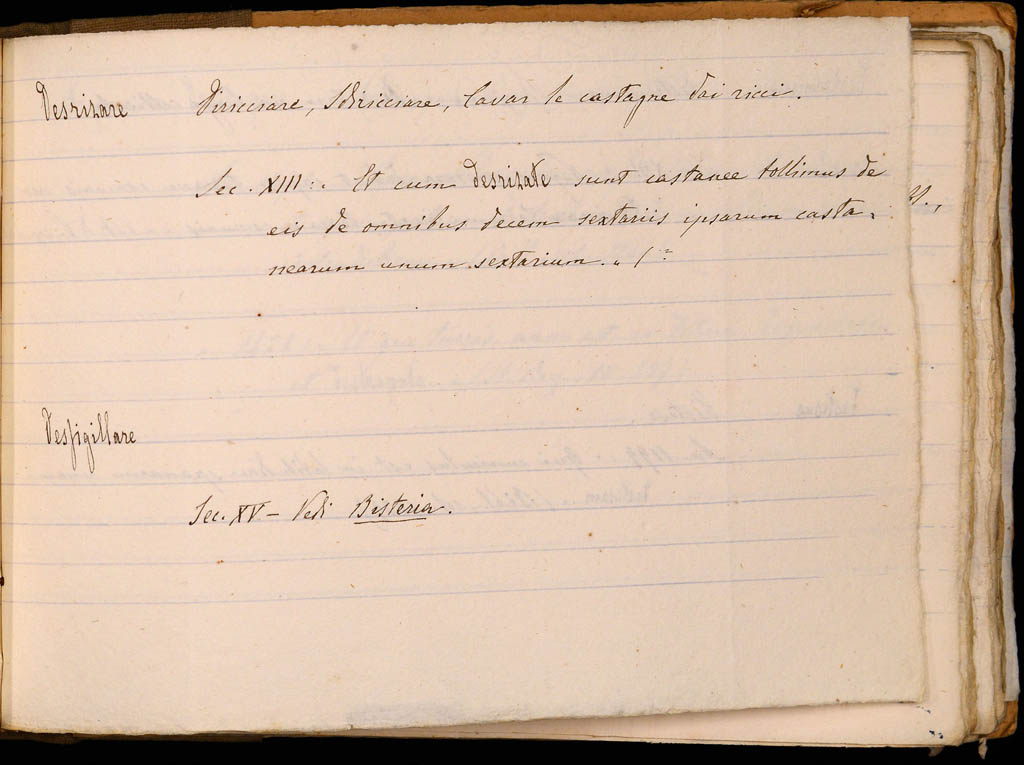 Desrizare Diricciare, Sdiricciare, Cavar le castagne dai ricci.
Sec. XIII: „ Et cum desrizate sunt castanee tollimus de
eis de omnibus decem sextariis ipsarum casta„
nearum unum sextarium. „ (
Desfigillare
Sec. XV – Vedi Bisteria.